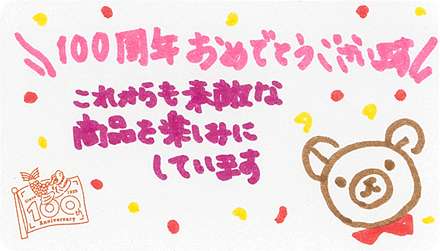 100周年 おめでとうございます
これからも素敵な
商品を楽しみに
しています
100
Anniversary